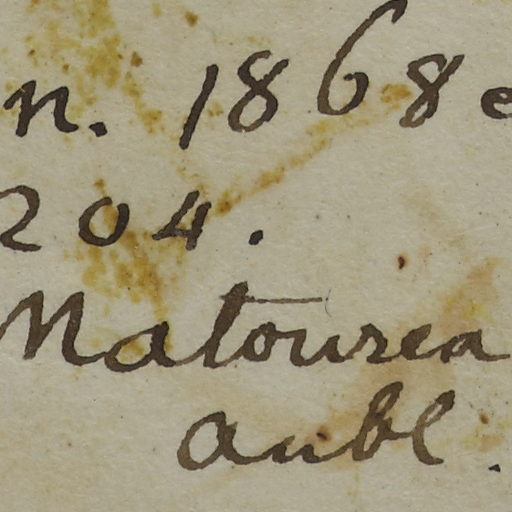 n. 1868 e
204.
Matourea
Aubl.